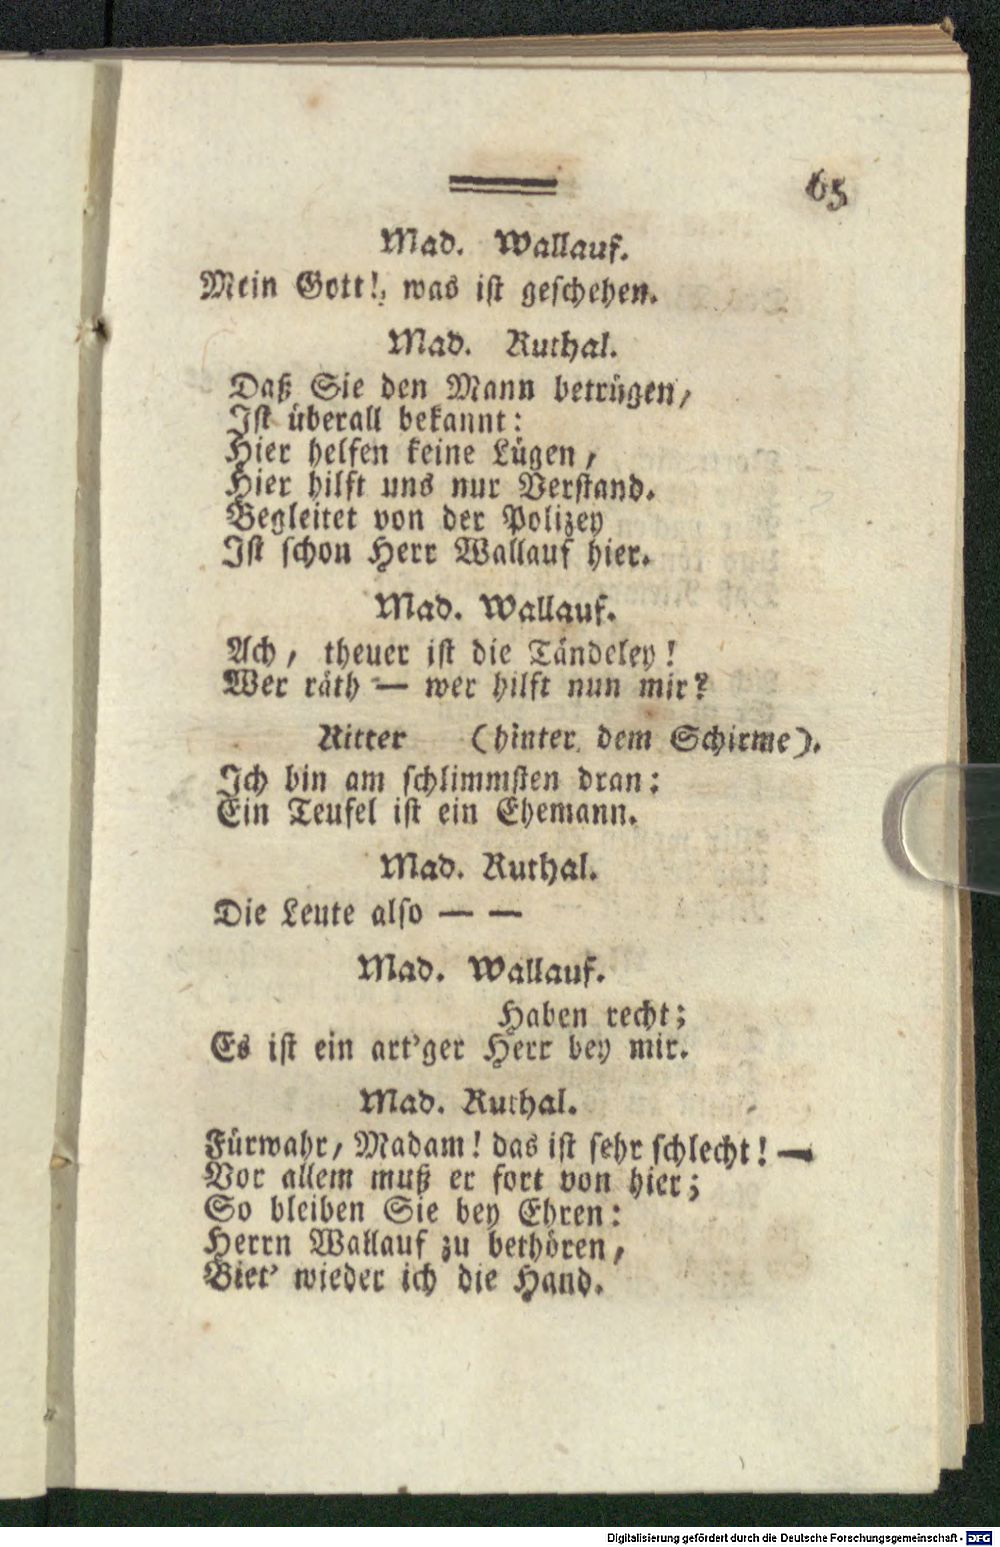 65
Mad. Wallauf.
Mein Gott!, was ist geschehen.
Mad. Ruthal.
Daß Sie den Mann betrügen,
Ist überall bekannt:
Hier helfen keine Lügen,
Hier hilft uns nur Verstand.
Begleitet von der Polizey
Ist schon Herr Wallauf hier.
Mad. Wallauf.
Ach, theuer ist die Tändeley!
Wer räth — wer hilft nun mir?
Ritter (hinter dem Schirme).
Ich bin am schlimmsten dran:
Ein Teufel ist ein Ehemann.
Mad. Ruthal.
Die Leute also — —
Mad. Wallauf.
Haben recht;
Es ist ein art'ger Herr bey mir.
Mad. Ruthal.
Fürwahr, Madam! das ist sehr schlecht! —
Vor allem muß er fort von hier;
So bleiben Sie bey Ehren:
Herrn Wallauf zu bethören,
Biet' wieder ich die Hand.
Digitalisierung gefördert durch die Deutsche Forschungsgemeinschaft - DFG